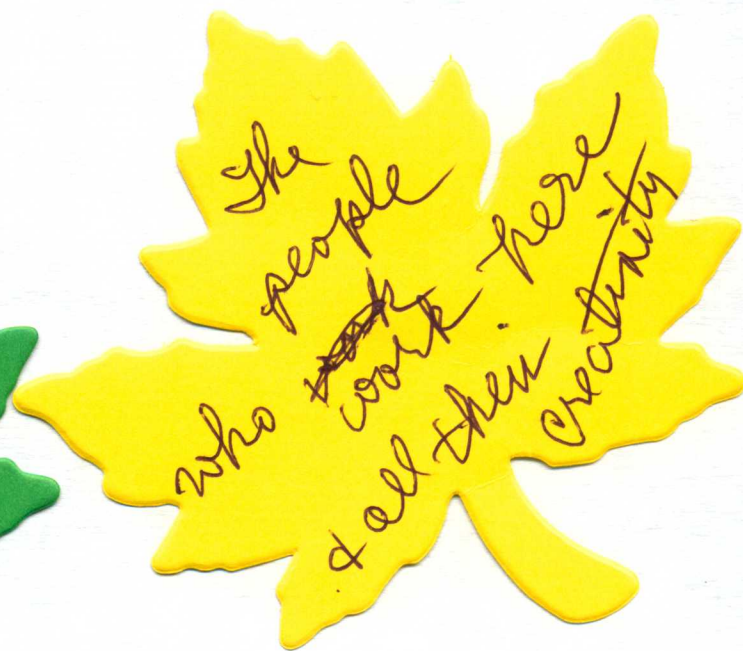 The
people
who work here
& all their
creativity